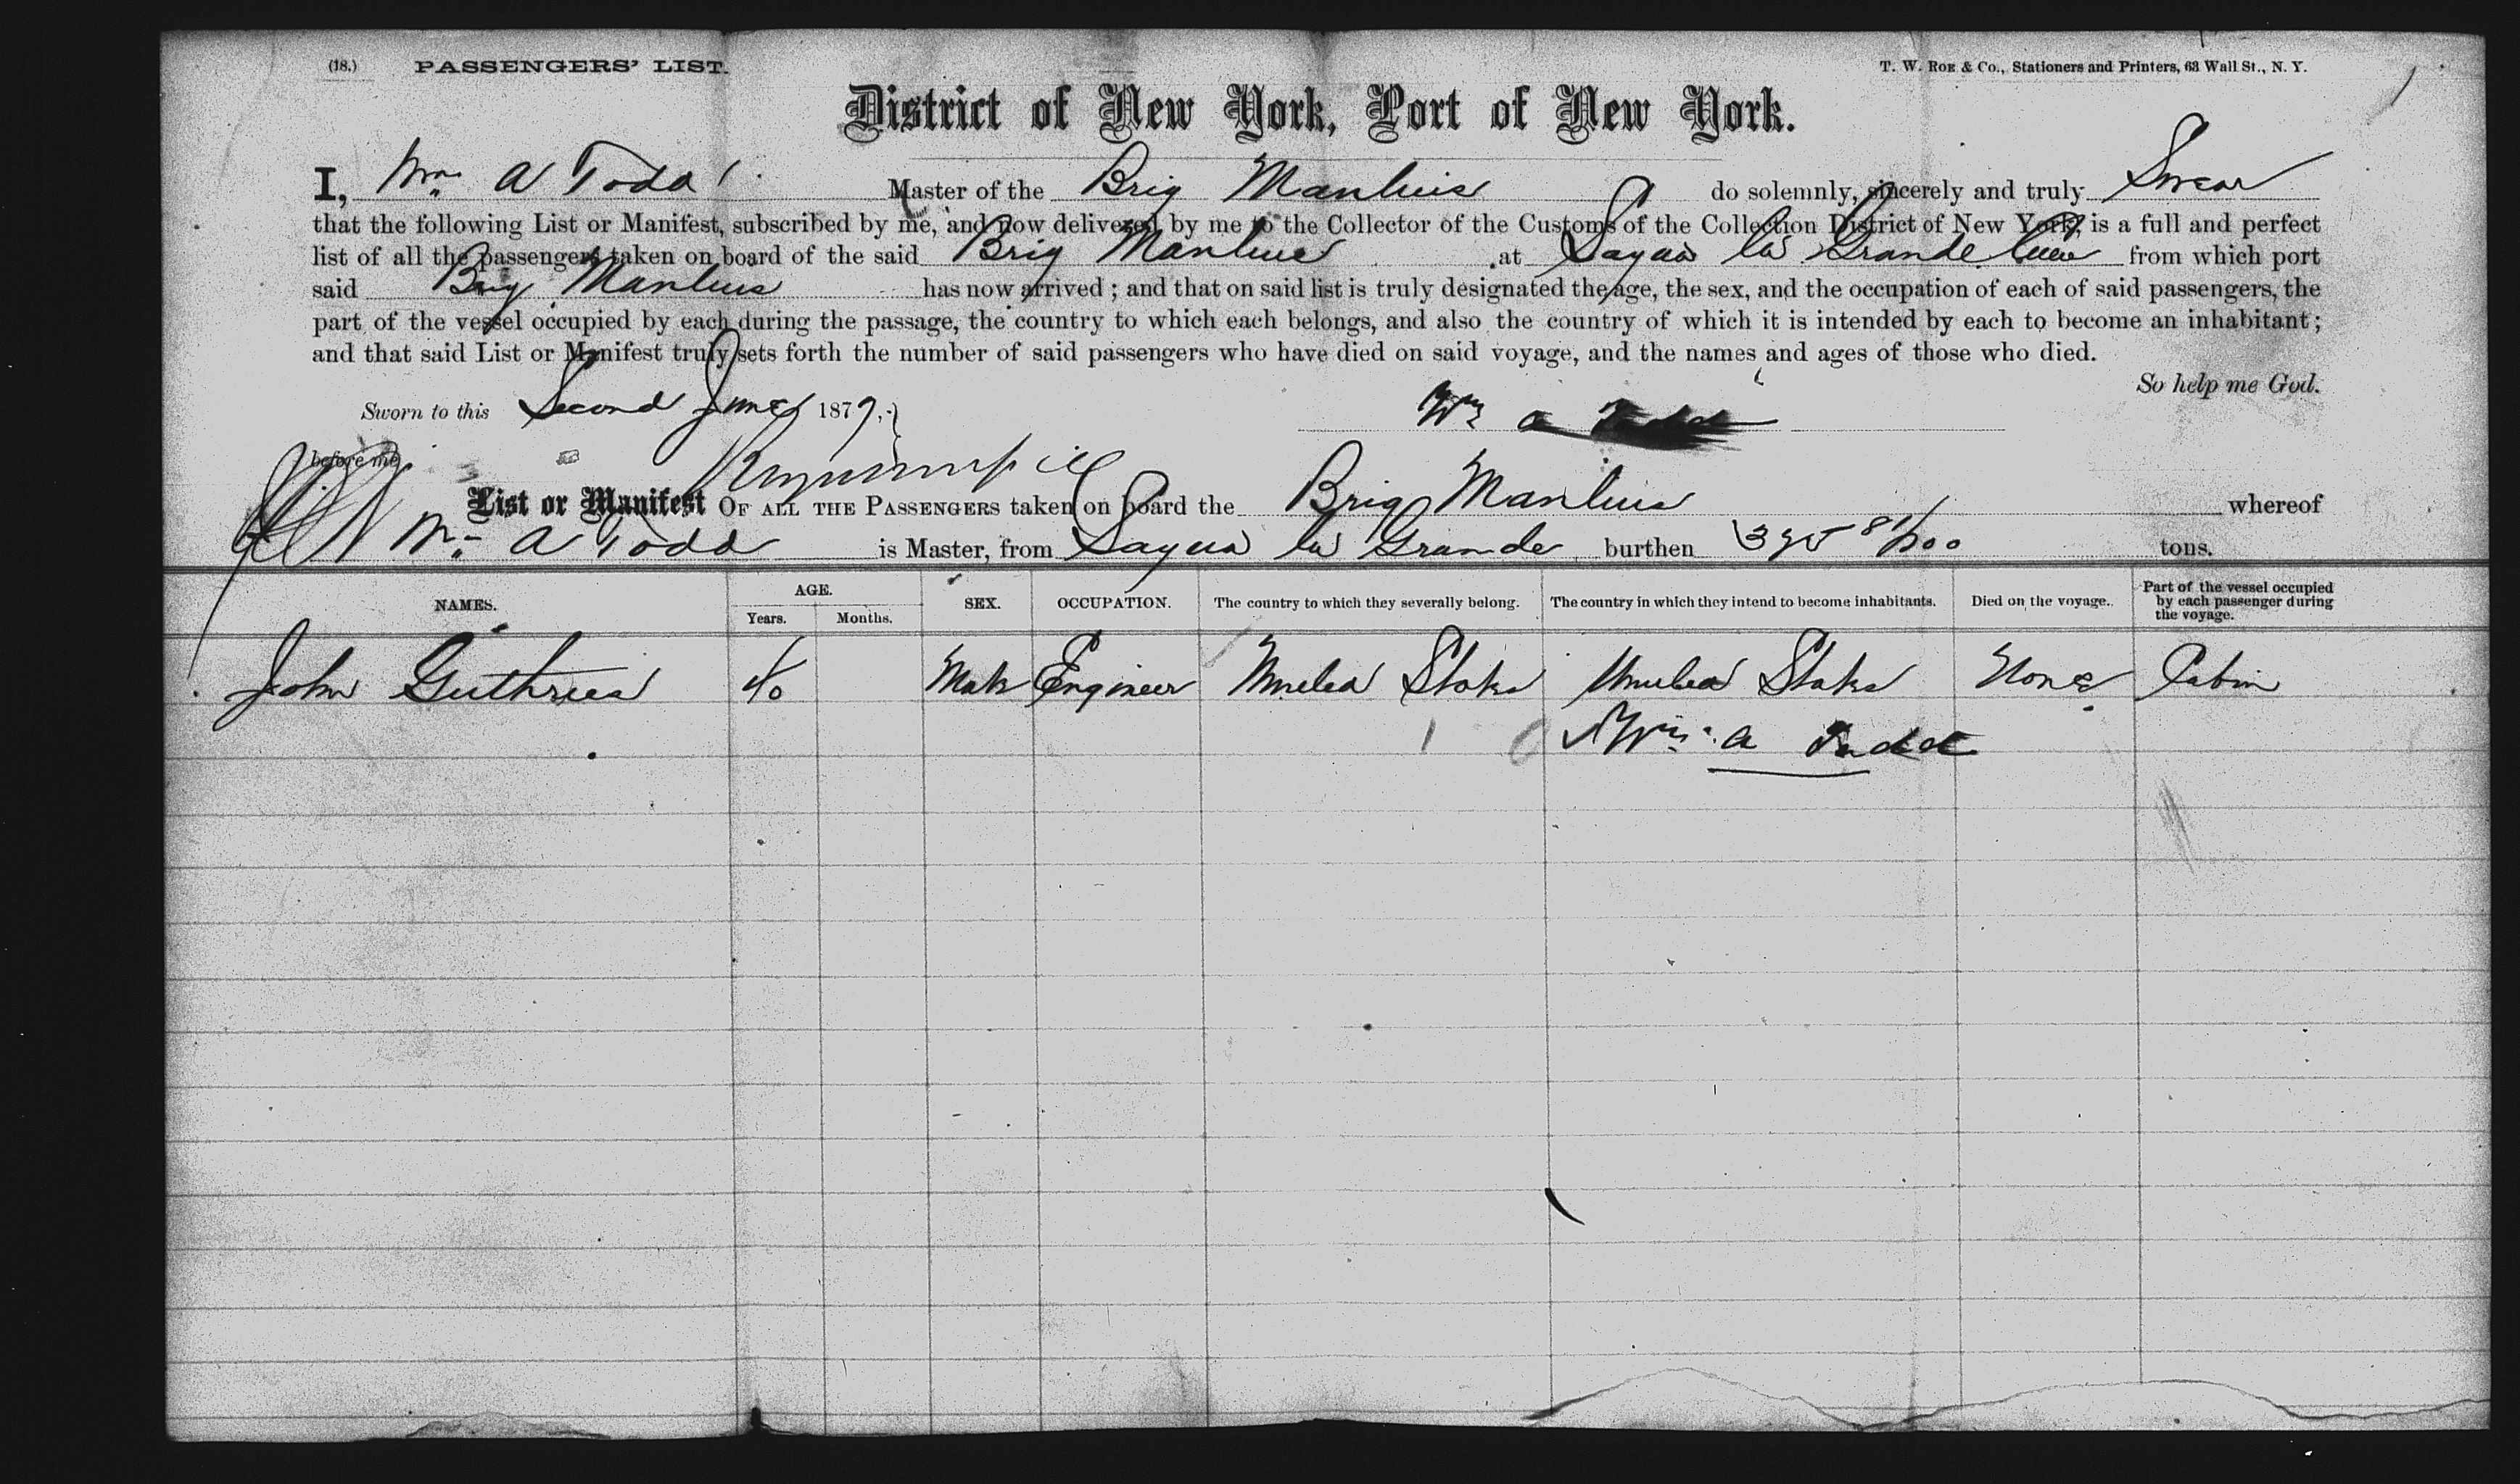 (18.) PASSENGERS' LIST.
T. W. ROE & Co., Stationers and Printers, 63 Wall St., N. Y.
District of New York, Port of New York.
I, Wm A Todd Master of the Brig Manlius do solemnly, sincerely and truly Swear
that the following List or Manifest, subscribed by me, and now delivered by me to the Collector of the Customs of the Collection District of New York, is a full and perfect
list of all the passengers taken on board of the said Brig Manlius at Sagua la Grande Cuba from which port
said Brig Manlius has now arrived; and that on said list is truly designated the age, the sex, and the occupation of each of said passengers, the
part of the vessel occupied by each during the passage, the country to which each belongs, and also the country of which it is intended by each to become an inhabitant;
and that said List or Manifest truly sets forth the number of said passengers who have died on said voyage, and the names and ages of those who died.
So help me God.
Sworn to this Second June 1879.
Wm A Todd
before me
List or Manifest OF ALL THE PASSENGERS taken on board the Brig Manlius whereof
Wm A Todd is Master, from Sagua la Grande burthen tons.
NAMES. AGE. Years. Months. SEX. OCCUPATION. The country to which they severally belong. The country in which they intend to become inhabitants. Died on the voyage. Part of the vessel occupied by each passenger during the voyage.
John Guthrie 40 Male Engineer United States United States None Cabin
Wm A Todd